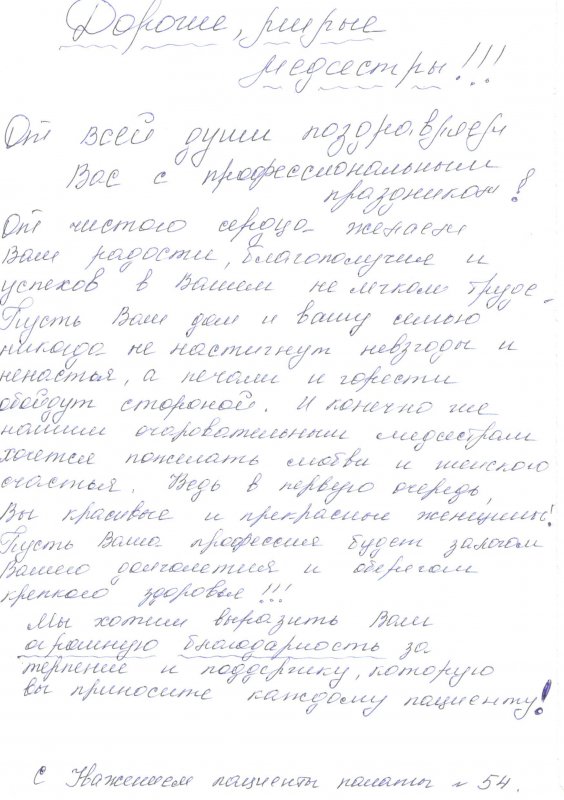 Дорогие, милые
медсестры!!!
От всей души поздравляем
Вас с профессиональным
праздником!
От чистого сердца желаем
Вам радости, благополучия и
успехов в Вашем не легком труде.
Пусть Ваш дом и вашу семью
никогда не настигнут невзгоды и
ненастья, а печали и горести
обойдут стороной. И конечно же
нашим очаровательным медсестрам
хочется пожелать любви и женского
счастья. Ведь в первую очередь,
Вы красивые и прекрасные женщины!
Пусть Ваша профессия будет залогом
Вашего долголетия и оберегом
крепкого здоровья!!!
Мы хотим выразить Вам
огромную благодарность за
терпение и поддержку, которую
вы приносите каждому пациенту!
С Уважением пациенты палаты № 54.